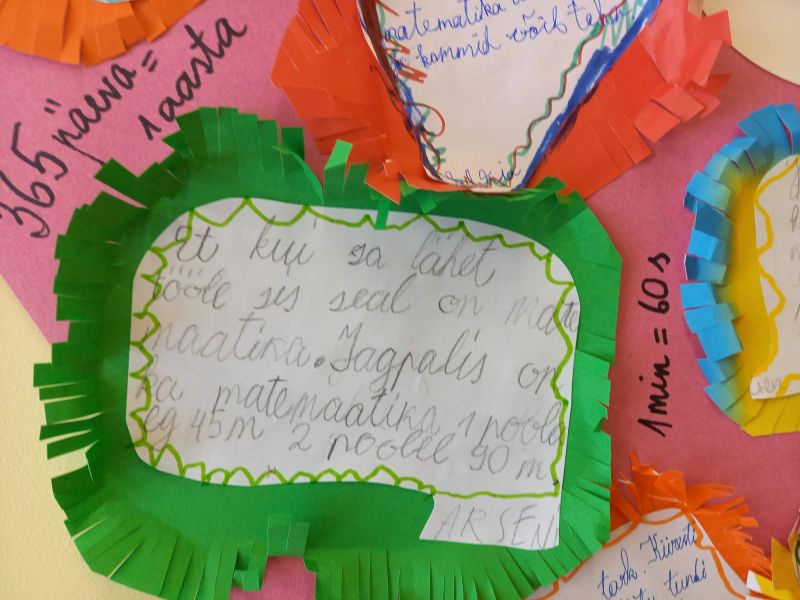 365 päeva =
1 aasta
matematika
kommid võib
Et kui sa lähet
tööle sis seal on mate
maatika. Jagpalis on
ka matemaatika 1 poole
eg 45m 2 poolel 90 m
ARSENI
1 min = 60 s
tark. Kiiresti
tundi